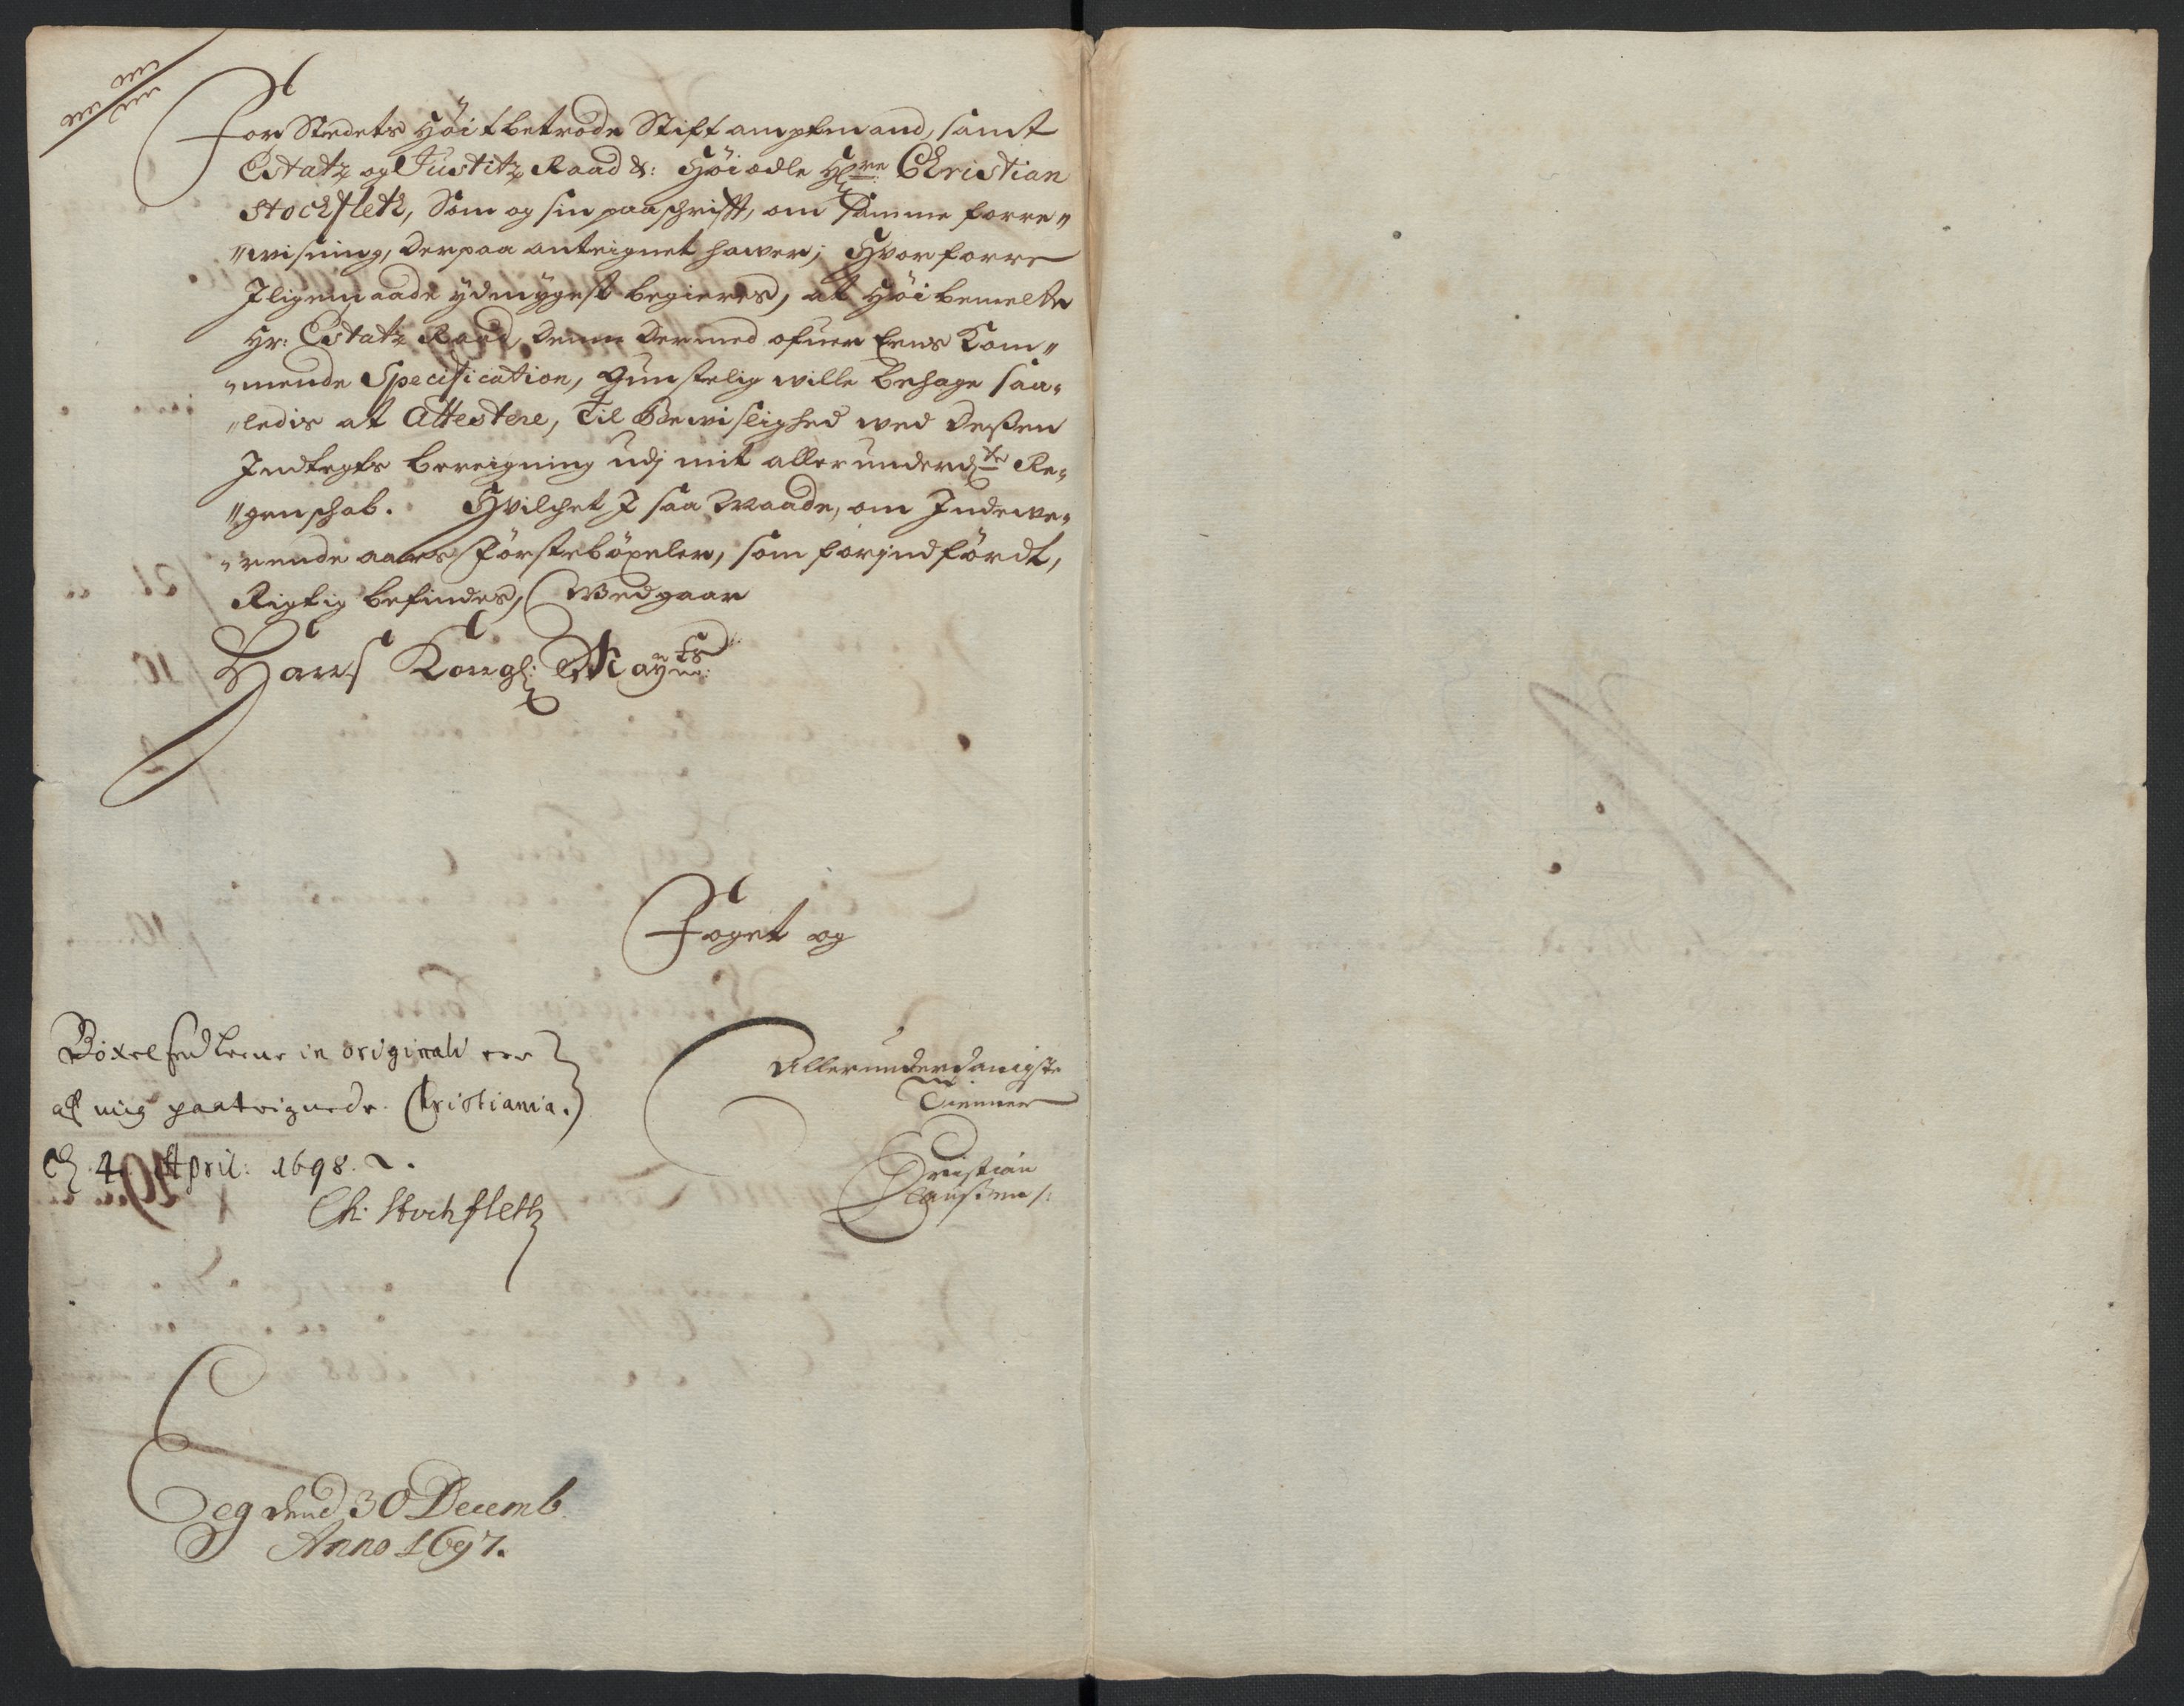 For Stedets Høitbetrode Stiftampftmand, samt
Estatz og Justitz Raad &: Høiædle Hl:re Christian
Stockfleth, Som og sin paaschrifft, om Samme forre„
„wisning, Derpaa anteignet hawer; Hvorforre
Jligemaade ydmygest begieres, at Høibemelte
Hr: Estatz Raad, Denne Dermed ofuer Eens Kom„
„mende Specification, gunstelig wille behage saa„
„ledis at Attestere, Til Bewislighed wed Dessen
Indtegts bereigning udj mit allerunderd:te Re„
„genschab. Hvilchet J saa Maade, om Indewe„
„rende aars Førstebøxeler, som forindførdt,
Rigtig befindes, Wedgaar
Hans Kongl: May:ts
Foget og
Allerunderdanigste
Tienner
Christian
Claussen
Bøxelsedlerne in originali ere
af mig paateignede. Christiania.
d 4 April: 1698.
Ch: Stockfleth
Eeg dend 30 Decemb.
Anno 1697.